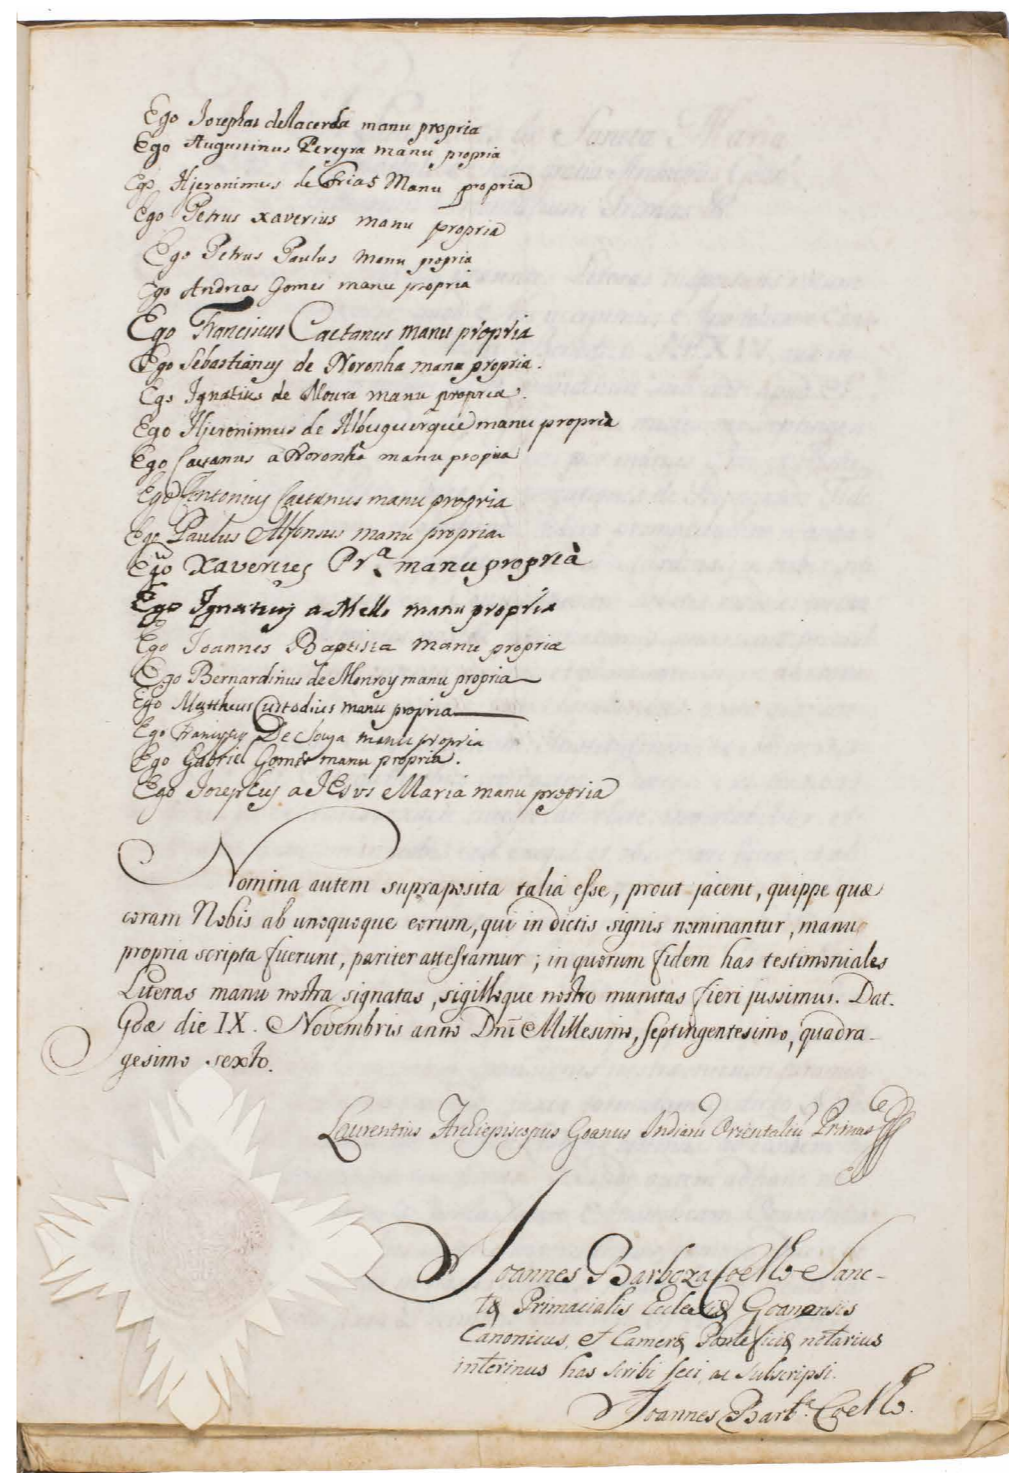 Ego Josephus de Lacerda manu propria
Ego Augustinus Pereyra manu propria
Ego Hjeronimus de Frias Manu propria
Ego Petrus Xaverius manu propria
Ego Petrus Paulus manu propria
Ego Andreas Gomes manu propria
Ego Franciscus Caetanus manu propria
Ego Sebastianus de Noronha manu propria.
Ego Ignatius de Moura manu propria.
Ego Hjeronimus de Albuquerque manu propria
Ego Caetanus a Noronha manu propria
Ego Antonius Caetanus manu propria
Ego Paulus Alfonsus manu propria
Ego Xaverius Prª. manu propria
Ego Ignatius a Mello manu propria
Ego Joannes Baptista manu propria
Ego Bernardinus de Monroy manu propria
Ego Mattheus Custodius manu propria
Ego Franciscus De Souza manu propria
Ego Gabriel Gomes manu propria.
Ego Josephus a JEsus Maria manu propria
Nomina autem supraposita talia esse, prout jacent, quippe quæ
coram Nobis ab unoquoque eorum, qui in dictis signis nominantur, manu
propria scripta fuerunt, pariter attestamur; in quorum fidem has testimoniales
Literas manu nostra signatas, sigilloque nostro munitas fieri jussimus. Dat.
Goæ die IX. Novembris anno Dnĩ Millesimo, septingentesimo, quadra-
gesimo sexto.
Laurentius Archiepiscopus Goanus Indiarũ Orientaliũ Primas
Joannes Barboza Coelho Sanc-
tæ Primacialis Ecclesiæ Goanensis
Canonicus, et Cameræ Pontificiæ notarius
interinus has scribi feci, ac subscripsi.
Joannes Barb.ª Coelho.